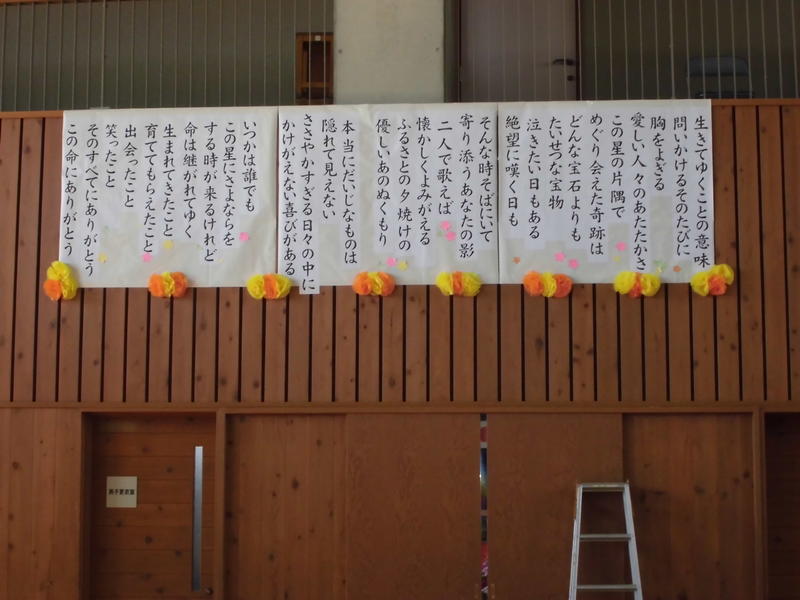 生きてゆくことの意味
問いかけるそのたびに
胸をよぎる
愛しい人々のあたたかさ
この星の片隅で
めぐり会えた奇跡は
どんな宝石よりも
たいせつな宝物
泣きたい日もある
絶望に嘆く日も
そんな時そばにいて
寄り添うあなたの影
二人で歌えば
懐かしくよみがえる
ふるさとの夕焼けの
優しいあのぬくもり
本当にだいじなものは
隠れて見えない
ささやかすぎる日々の中に
かけがえない喜びがある
いつかは誰でも
この星にさよならを
する時が来るけれど
命は継がれてゆく
生まれてきたこと
育ててもらえたこと
出会ったこと
笑ったこと
そのすべてにありがとう
この命にありがとう
男子更衣室